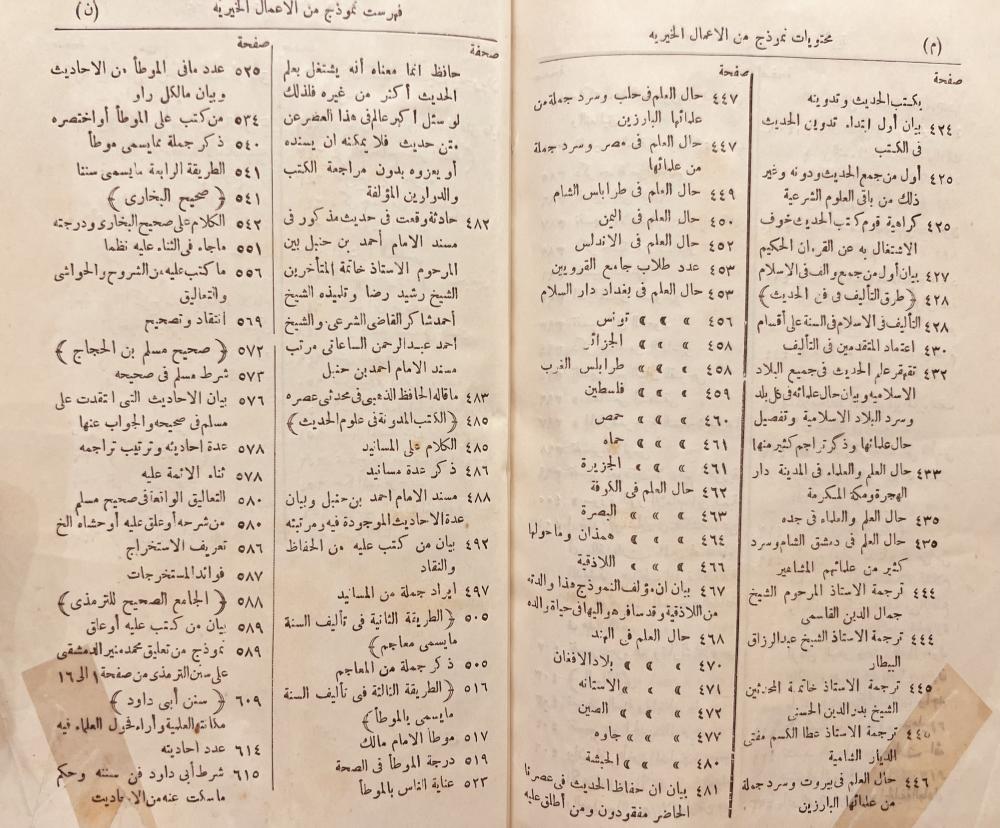 (م)
محتويات نموذج من الاعمال الخيريه
صفحة
بكتب الحديث وتدوينه
٤٢٤ بيان أول ابتداء تدوين الحديث
فى الكتب
٤٢٥ أول من جمع الحديث ودونه وغير
ذلك من باقى العلوم الشرعية
٤٢٥ كراهية قوم كتب الحديث خوف
الاشتغال به عن القرءان الحكيم
٤٢٧ بيان أول من جمع والف فى الاسلام
٤٢٨ ﴿ طرق التأليف فى فن الحديث ﴾
٤٢٨ التأليف فى الاسلام فى السنة على أقسام
٤٣٠ اعتماد المتقدمين فى التأليف
٤٣٢ تقهقر علم الحديث فى جميع البلاد
الاسلاميه وبيان حال علمائه فى كل بلد
وسرد البلاد الاسلامية وتفصيل
حال علمائها وذكر تراجم كثير منها
٤٣٣ حال العلم والعلماء فى المدينة دار
الهجرة ومكة المكرمة
٤٣٥ حال العلم والعلماء فى جده
٤٣٥ حال العلم فى دمشق الشام وسرد
كثير من علمائهم المشاهير
٤٤٤ ترجمة الاستاذ المرحوم الشيخ
جمال الدين القاسمى
٤٤٤ ترجمة الاستاذ الشيخ عبد الرزاق
البيطار
٤٤٥ ترجمة الاستاذ خاتمة المحدثين
الشيخ بدر الدين الحسنى
٤٤٥ ترجمة الاستاذ عطا الكسم مفتى
الديار الشامية
٤٤٦ حال العلم فى بيروت وسرد جملة
من علمائها البارزين
صفحة
٤٤٧ حال العلم فى حلب وسرد جملة من
علمائها البارزين
٤٤٧ حال العلم فى مصر وسرد جملة
من علمائها
٤٤٩ حال العلم فى طرابلس الشام
٤٥٠ حال العلم فى اليمن
٤٥٢ حال العلم فى الاندلس
٤٥٣ عدد طلاب جامع القرويين
٤٥٣ حال العلم فى بغداد دار السلام
٤٥٦ » » » تونس
٤٥٨ » » » الجزائر
٤٥٨ » » » طرابلس الغرب
٤٥٩ » » » فلسطين
٤٦٠ » » » حمص
٤٦١ » » » حماه
٤٦١ » » » الجزيرة
٤٦٢ حال العلم فى الكوفة
٤٦٣ » » » البصرة
٤٦٤ » » » همذان وماحولها
٤٦٦ » » » اللاذقية
٤٦٧ بيان ان مؤلف النموذج هذا والدته
من اللاذقية وقد سافر هو اليها فى حياة والده
٤٦٨ حال العلم فى الهند
٤٧٠ » » » بلاد الافغان
٤٧١ » » » الاستانه
٤٧٢ » » » الصين
٤٧٧ » » » جاوه
٤٨٠ » » » الحبشة
٤٨١ بيان ان حفاظ الحديث فى عصرنا
الحاضر مفقودون ومن أطلق عليه
فهرست نموذج من الاعمال الخيريه
(ن)
صحفة
حافظ انما معناه أنه يشتغل بعلم
الحديث أكثر من غيره فلذلك
لو سئل أكبر عالم فى هذا العصر عن
متن حديث فلا يمكنه ان يسنده
أو يعزوه بدون مراجعة الكتب
والدرارين المؤلفة
٤٨٢ حادثة وقعت فى حديث مذكور فى
مسند الامام أحمد بن حنبل بين
المرحوم الاستاذ خاتمة المتأخرين
الشيخ رشيد رضا وتلميذه الشيخ
أحمد شاكر القاضى الشرعى والشيخ
أحمد عبد الرحمن الساعاتى مرتب
مسند الامام احمد بن حنبل
٤٨٣ ماقاله الحافظ الذهبى فى محدثى عصره
٤٨٥ ﴿ الكتب المدونة فى علوم الحديث ﴾
٤٨٥ الكلام على المسانيد
٤٨٦ ذكر عدة مسانيد
٤٨٨ مسند الامام احمد بن حنبل وبيان
عدة الاحاديث الموجودة فيه ومرتبته
٤٩٢ بيان من كتب عليه من الحفاظ
والنقاد
٤٩٧ ايراد جملة من المسانيد
٥٠٥ ﴿ الطريقة الثانية فى تأليف السنة
مايسمى معاجم ﴾
٥٠٥ ذكر جملة من المعاجم
٥١٦ ﴿ الطريقة الثالثة فى تأليف السنة
مايسمى بالموطأ ﴾
٥١٧ موطأ الامام مالك
٥١٩ درجة الموطأ فى الصحة
٥٢٣ عناية الناس بالموطأ
صفحة
٥٢٥ عدد مافى الموطأ من الاحاديث
وبيان مالكل راو
٥٣٤ من كتب على الموطأ أو اختصره
٥٤٠ ذكر جملة مما يسمى موطأ
٥٤١ الطريقة الرابعة مايسمى سننا
٥٤١ ﴿ صحيح البخارى ﴾
٥٤٢ الكلام على صحيح البخارى ودرجته
٥٥١ ماجاء فى الثناء عليه نظما
٥٥٦ ما كتب عليه من الشروح والحواشى
والتعاليق
٥٦٩ انتقاد وتصحيح
٥٧٢ ﴿ صحيح مسلم بن الحجاج ﴾
٥٧٣ شرط مسلم فى صحيحه
٥٧٦ بيان الاحاديث التى انتقدت على
مسلم فى صحيحه والجواب عنها
٥٧٨ عدة احاديثه وترتيب تراجمه
٥٧٨ ثناء الائمة عليه
٥٨٠ التعاليق الواقعة فى صحيح مسلم
٥٨٠ من شرحه أو علق عليه أو حشاه الخ
٥٨٦ تعريف الاستخراج
٥٨٧ فوائد المستخرجات
٥٨٨ ﴿ الجامع الصحيح للترمذى ﴾
٥٨٩ بيان من كتب عليه أو علق
٥٨٩ نموذج من تعليق محمد منير الدمشقى
على سنن الترمذى من صفحة ١ الى ١٦
٦٠٩ ﴿ سنن أبى داود ﴾
مكانته العلمية وأراء فحول العلماء فيه
٦١٤ عدد احاديثه
٦١٥ شرط أبى داود فى سننه وحكم
ماسكت عنه من الاحاديث